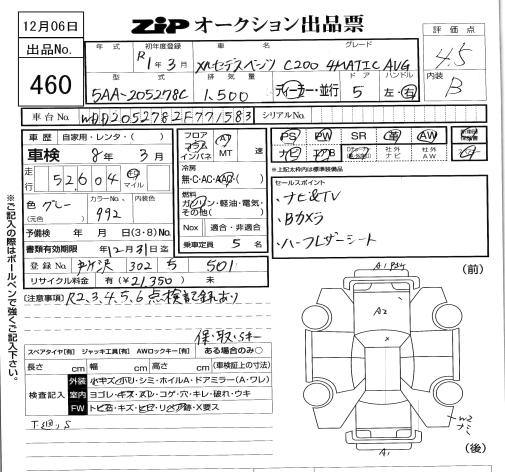 12月06日
ZIP オークション出品票
評価点
4.5
出品No.
460
年式 初年度登録 車名 グレード
R1年3月 メルセデスベンツ C200 4MATIC AVG
型式 排気量 ドア ハンドル
5AA-205278C 1,500 ディーラー・並行 5 左・右
内装
B
車台No. WDD2052782F771583 シリアルNo.
車歴 自家用・レンタ・( )
車検 8年3月
走行 52,604 km マイル
色 グレー (元色)
カラーNo. 992
内装色
予備検 年 月 日(3・8)No.
書類有効期限 年12月31日迄
登録No. 所沢 302 5 501
リサイクル料金 有(¥21,350)未
フロア コラム インパネ AT MT 速
冷房 無・C・AC・AAC
燃料 ガソリン・軽油・電気・その他( )
Nox 適合・非適合
乗車定員 5 名
PS PW SR 革 AW
ナビ エアB TV 社外ナビ 社外AW
*上記太枠内は標準装備品
セールスポイント
・ナビ&TV
・Bカメラ
・ハーフレザーシート
(注意事項) R2、3、4、5、6点検記録有り
保・取・Sキー
スペアタイヤ[有] ジャッキ工具[有] AWロックキー[有] ある場合のみ○
長さ cm 幅 cm 高さ cm (車検証上の寸法)
検査記入
外装 小キズ・小ハリ・シミ・ホイルA・ドアミラー(A・ワレ)
室内 ヨゴレ・キズ・スレ・コゲ・穴・キレ・破れ・ウキ
FW トビ石・キズ・ヒビ・リペア跡・X要ス
(前)
A2
x
W2
ナミ
A1
(後)
※ご記入の際はボールペンで強くご記入下さい。